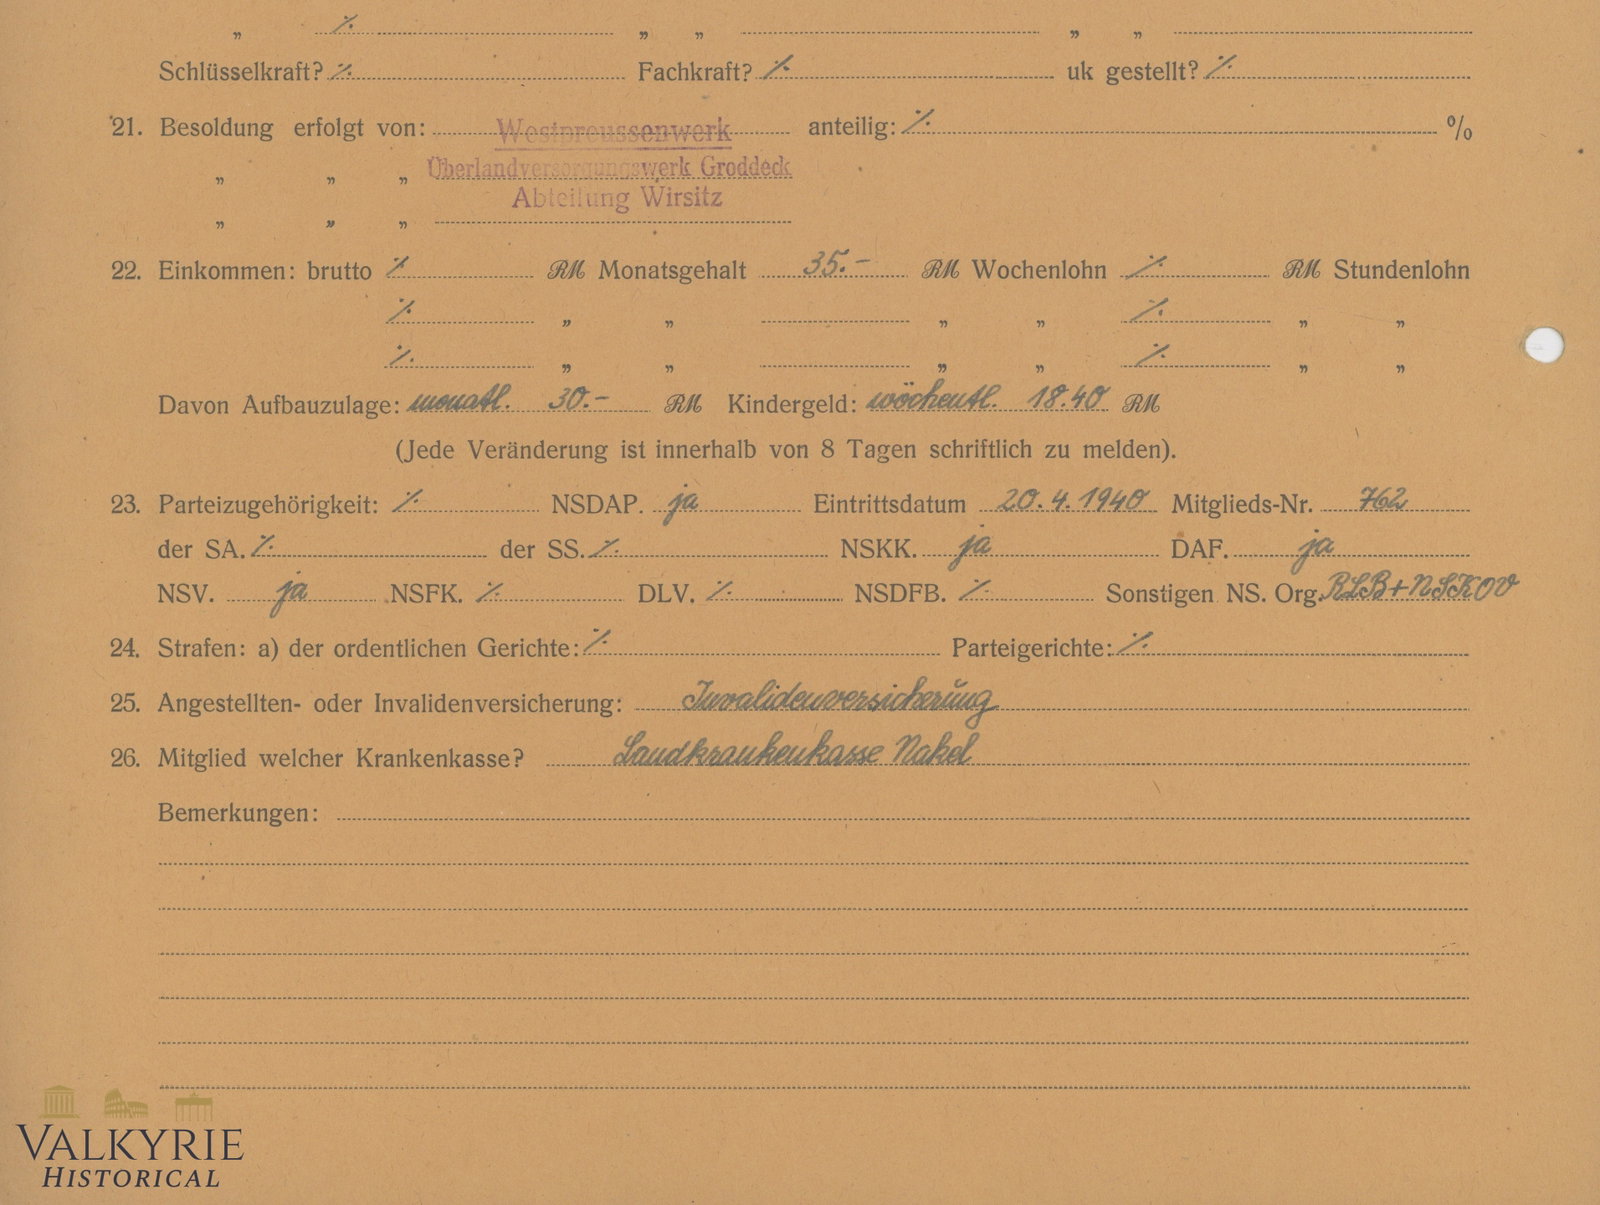 „ ⁒ „ „ „ „
Schlüsselkraft? ⁒ Fachkraft? ⁒ uk gestellt? ⁒
21. Besoldung erfolgt von: Westpreussenwerk anteilig: ⁒ %
„ „ „ Überlandversorgungswerk Groddeck
Abteilung Wirsitz
„ „ „
22. Einkommen: brutto ⁒ RM Monatsgehalt 35.- RM Wochenlohn ⁒ RM Stundenlohn
⁒ „ „ „ „ ⁒ „ „
⁒ „ „ „ „ ⁒ „ „
Davon Aufbauzulage: monatl. 30.- RM Kindergeld: wöchentl. 18.40 RM
(Jede Veränderung ist innerhalb von 8 Tagen schriftlich zu melden).
23. Parteizugehörigkeit: ⁒ NSDAP. ja Eintrittsdatum 20.4.1940 Mitglieds-Nr. 762
der SA. ⁒ der SS. ⁒ NSKK. ja DAF. ja
NSV. ja NSFK. ⁒ DLV. ⁒ NSDFB. ⁒ Sonstigen NS. Org. RLB + NSKOV
24. Strafen: a) der ordentlichen Gerichte: ⁒ Parteigerichte: ⁒
25. Angestellten- oder Invalidenversicherung: Invalidenversicherung
26. Mitglied welcher Krankenkasse? Landkrankenkasse Nakel
Bemerkungen:
VALKYRIE
HISTORICAL